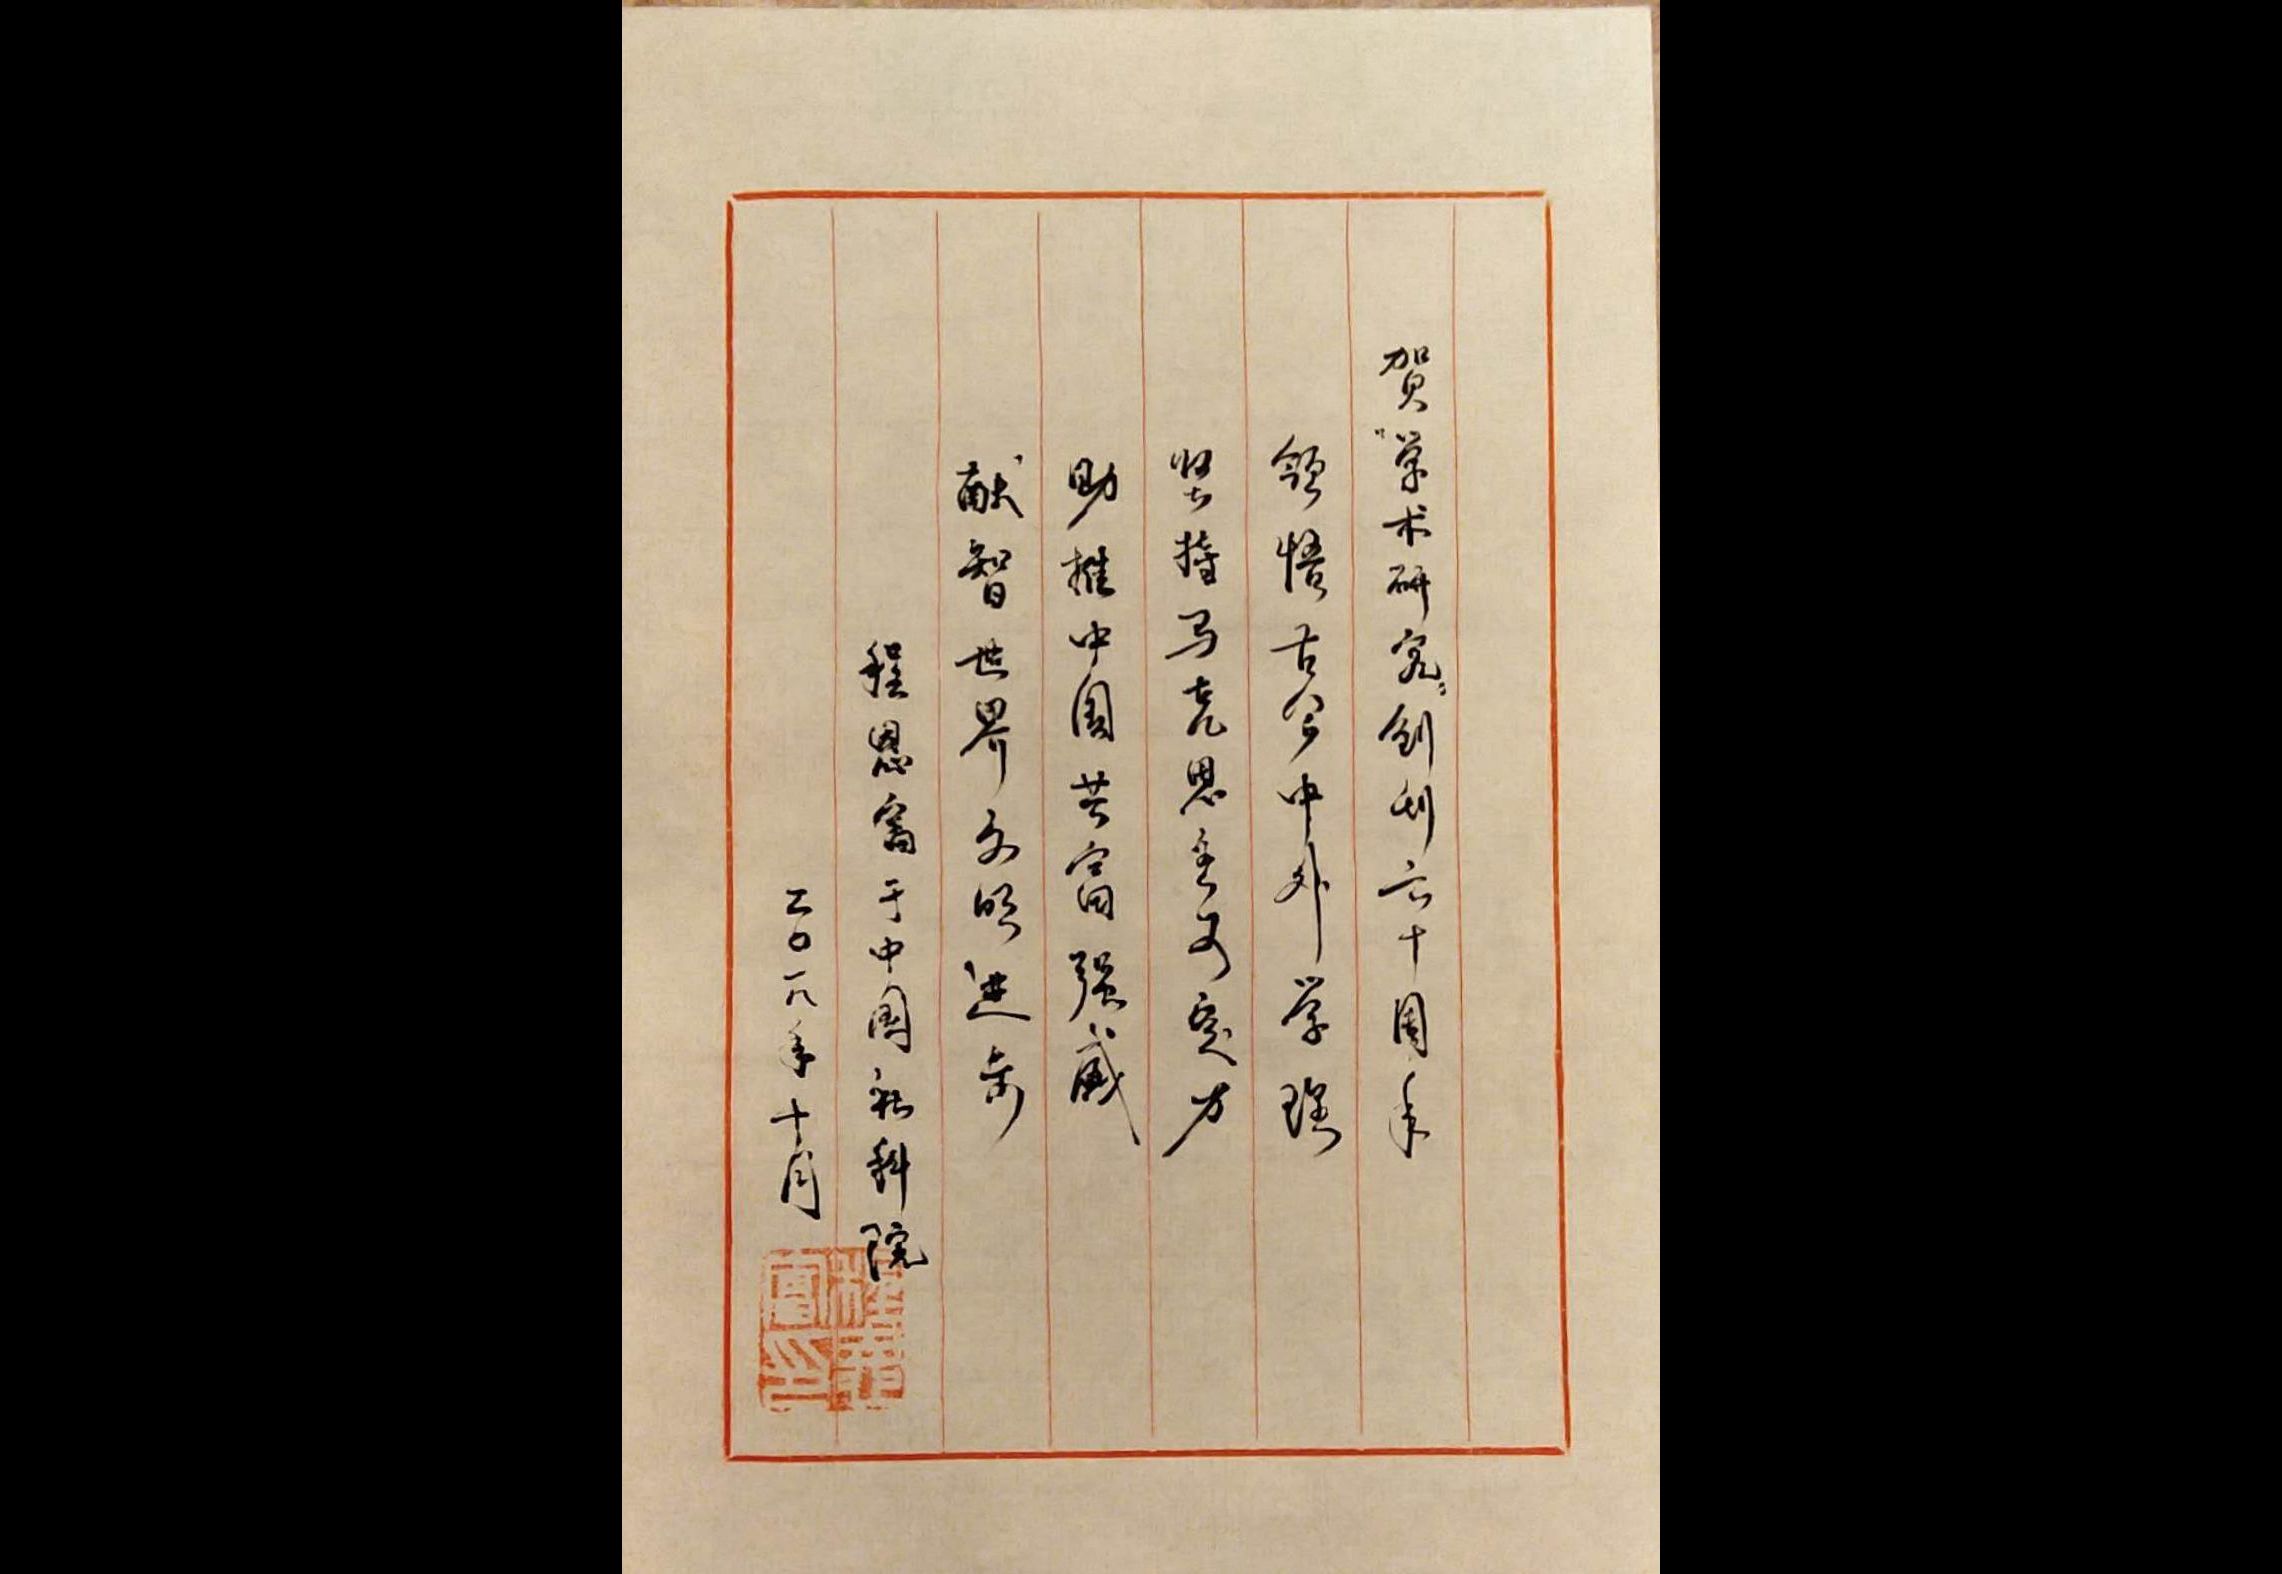 贺“学术研究”创刊六十周年
领悟古今中外学理
坚持马克思主义变方
助推中国共富强盛
献智世界文明进步
程恩富于中国社科院
二〇一八年十月
程恩富印